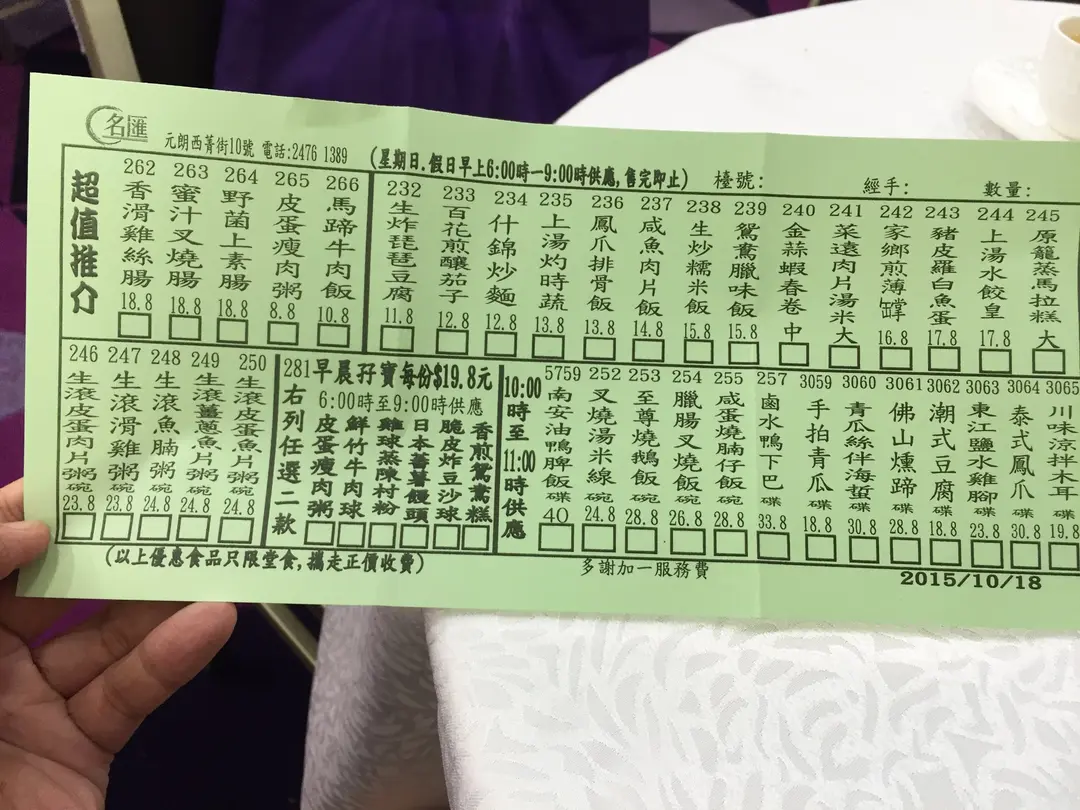 名匯
元朗西菁街10號 電話:2476 1389
(星期日.假日早上6:00時一9:00時供應,售完即止)
檯號:
經手:
數量:
超值推介
262 香滑雞絲腸 18.8
263 蜜汁叉燒腸 18.8
264 野菌上素腸 18.8
265 皮蛋瘦肉粥 8.8
266 馬蹄牛肉飯 10.8
232 生炸琵琶豆腐 11.8
233 百花煎釀茄子 12.8
234 什錦炒麵 12.8
235 上湯灼時蔬 13.8
236 鳳爪排骨飯 13.8
237 咸魚肉片飯 14.8
238 生炒糯米飯 15.8
239 鴛鴦臘味飯 15.8
240 金蒜蝦春卷 中
241 菜遠肉片湯米 大
242 家鄉煎薄罉 16.8
243 豬皮羅白魚蛋 17.8
244 上湯水餃皇 17.8
245 原籠蒸馬拉糕 大
246 生滾皮蛋肉片粥 碗 23.8
247 生滾滑雞粥 碗 23.8
248 生滾魚腩粥 碗 24.8
249 生滾薑蔥魚片粥 碗 24.8
250 生滾皮蛋魚片粥 碗 24.8
281 早晨孖寶每份$19.8元
右列任選二款
6:00時至9:00時供應
皮蛋瘦肉粥
鮮竹牛肉球
雞球蒸陳村粉
日本蕃薯饅頭
脆皮炸豆沙球
香煎鴛鴦糕
10:00時至11:00時供應
5759 南安油鴨脾飯 碟 40
252 叉燒湯米線 碗 24.8
253 至尊燒鵝飯 碗 28.8
254 臘腸叉燒飯 碗 26.8
255 咸蛋燒腩仔飯 碗 28.8
257 鹵水鴨下巴 碟 33.8
3059 手拍青瓜 碟 18.8
3060 青瓜絲伴海蜇 碟 30.8
3061 佛山燻蹄 碟 28.8
3062 潮式豆腐 碟 18.8
3063 東江鹽水雞腳 碟 23.8
3064 泰式鳳爪 碟 30.8
3065 川味涼拌木耳 碟 19.8
(以上優惠食品只限堂食,攜走正價收費)
多謝加一服務費
2015/10/18